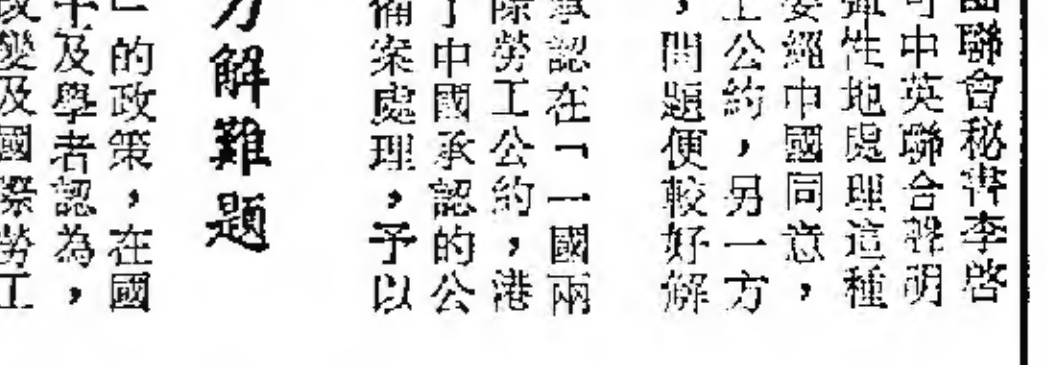 團聯會秘書李啓
可中英聯合聲明
彈性地處理這種
要經中國同意，
上公約，另一方
，問題便較好解
承認在「一國兩
際勞工公約，港
了中國承認的公
備案處理，予以
方解難題
的政策，在國
及學者認為，
改變及國際勞工